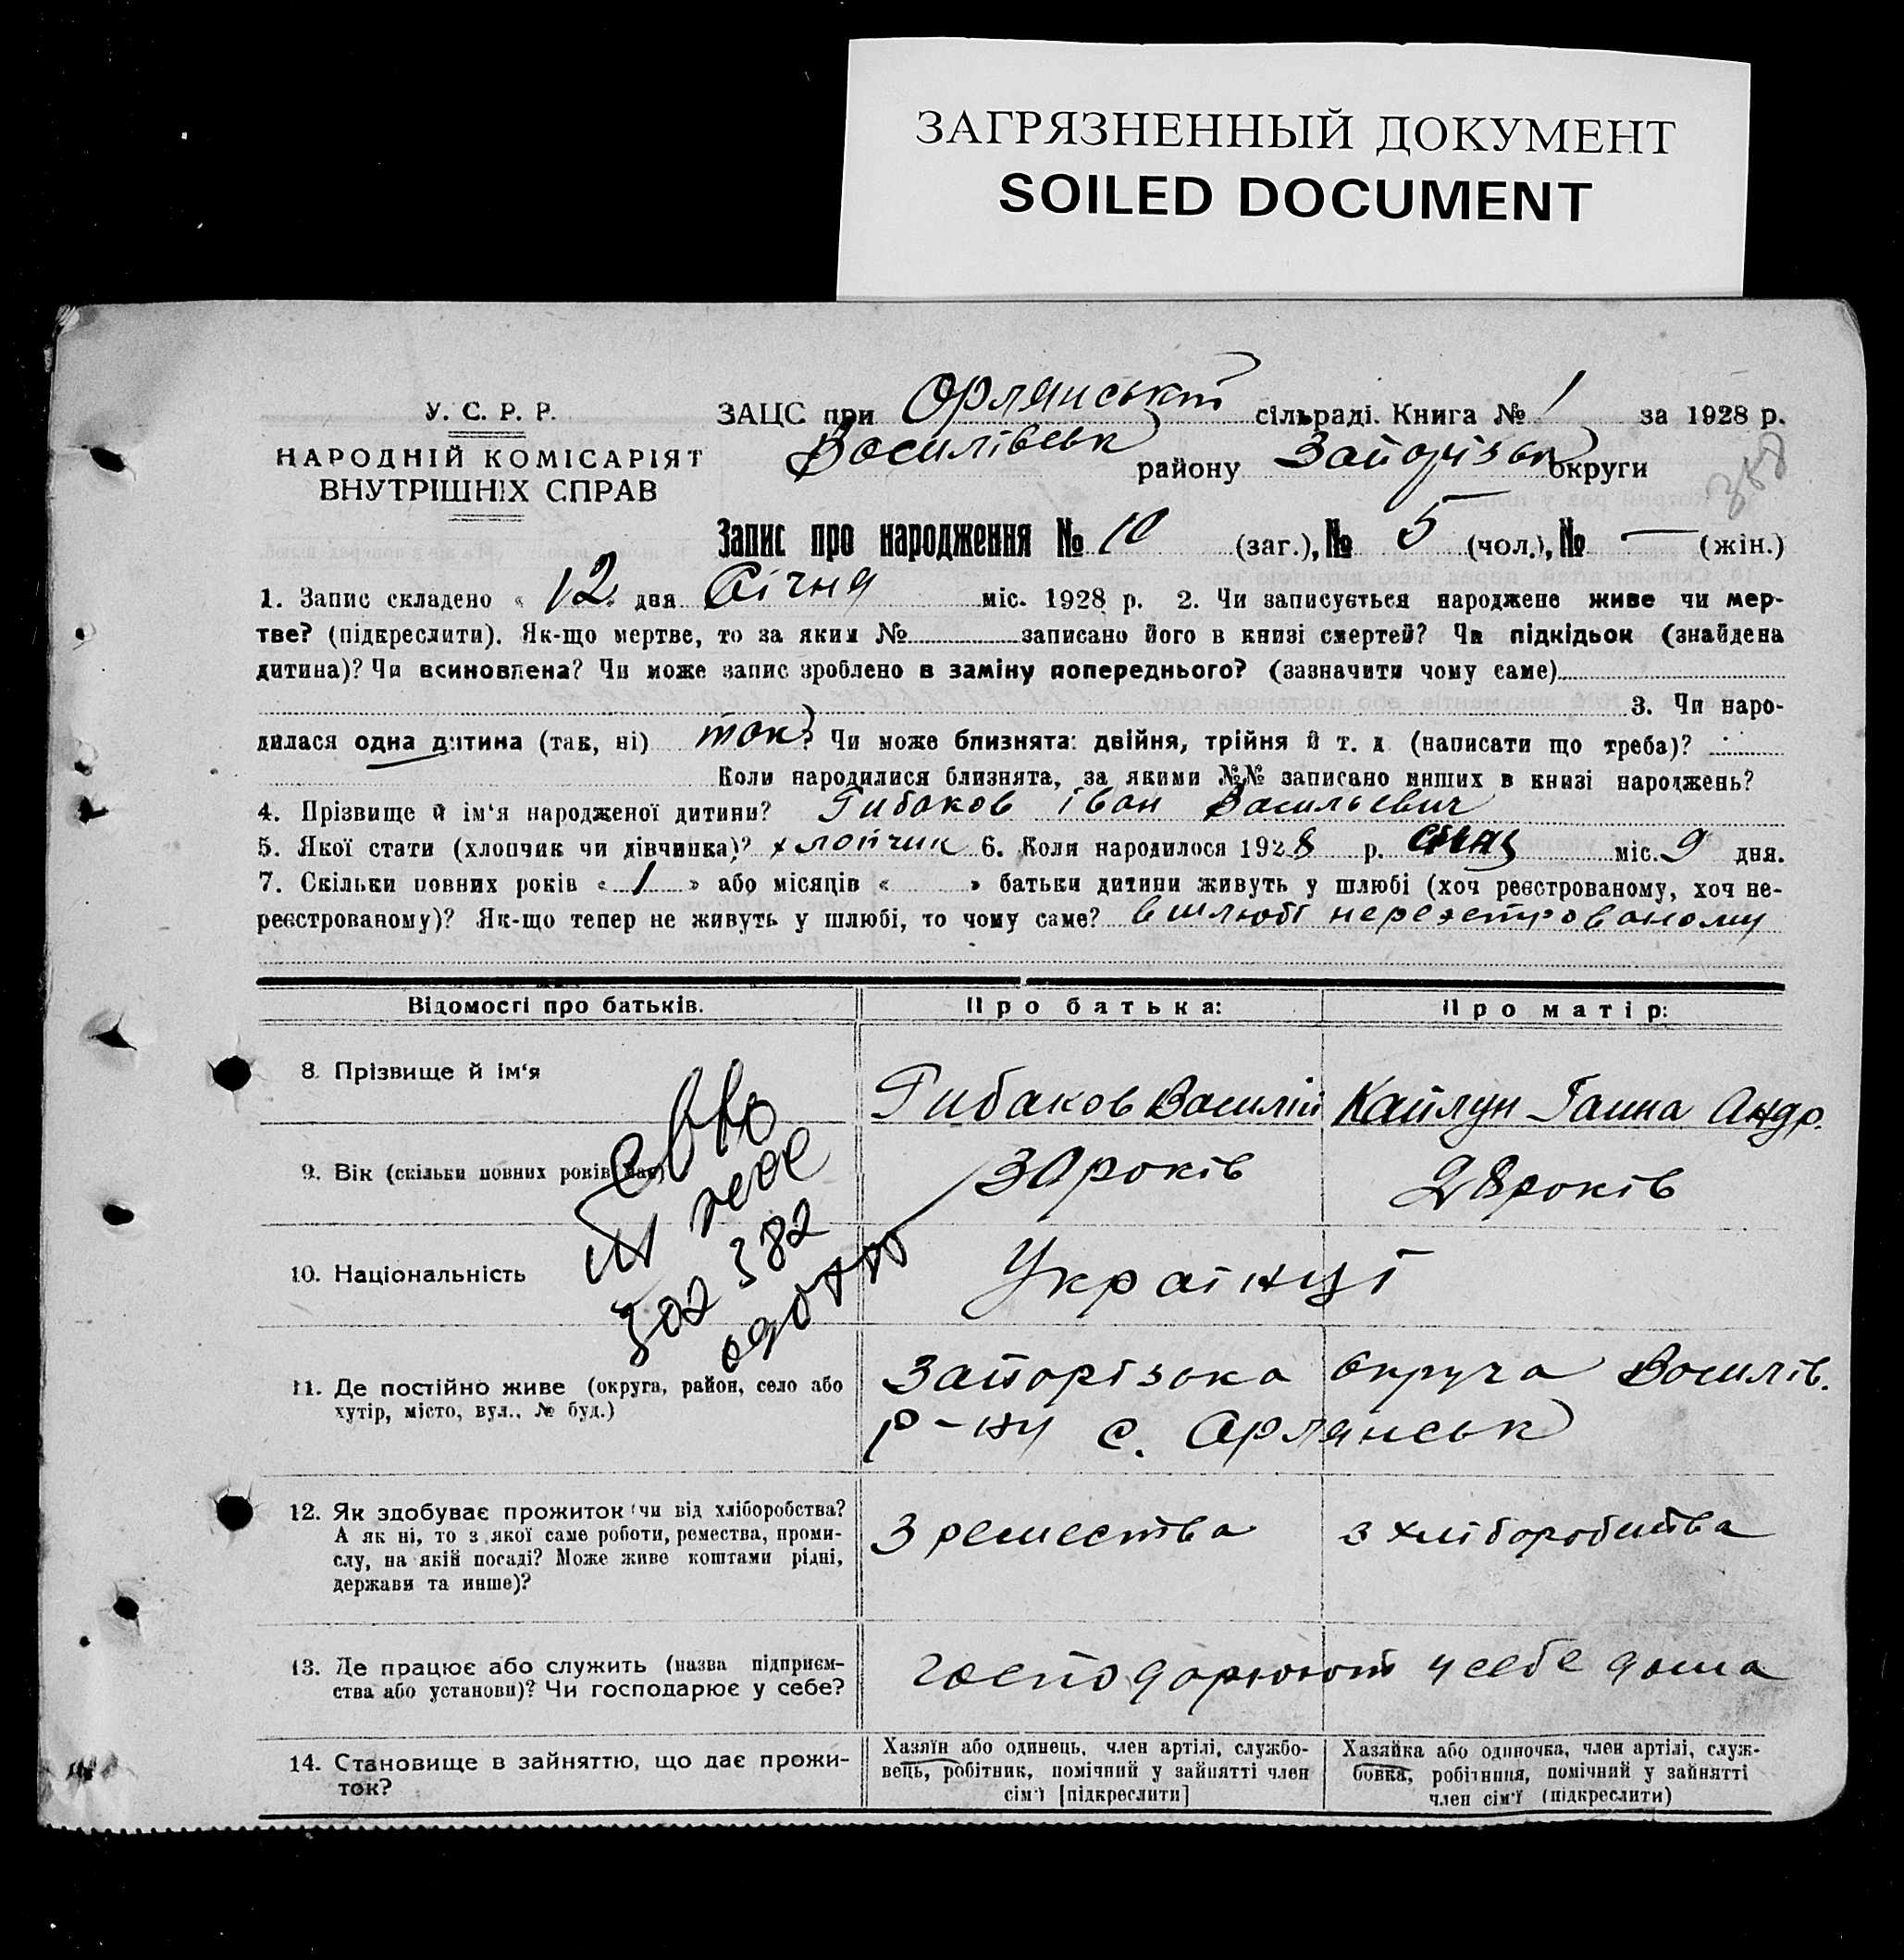 ЗАГРЯЗНЕННЫЙ ДОКУМЕНТ
SOILED DOCUMENT
У. С. Р. Р.
НАРОДНІЙ КОМІСАРІЯТ
ВНУТРІШНІХ СПРАВ
ЗАЦС при Орлянській сільраді. Книга № 1 за 1928 р.
Василівськ району Запорізьк округи
388
Запис про народження № 10 (заг.), № 5 (чол.), № — (жін.)
1. Запис складено « 12 » дня Січня міс. 1928 р. 2. Чи записується народжене живе чи мер-
тве? (підкреслити). Як-що мертве, то за яким № записано його в книзі смертей? Чи підкідьок (знайдена
дитина)? Чи всиновлена? Чи може запис зроблено в заміну попереднього? (зазначити чому саме)
3. Чи наро-
дилася одна дитина (так, ні) так? Чи може близнята: двійня, трійня й т. д (написати що треба)?
Коли народилися близнята, за якими №№ записано инших в книзі народжень?
4. Прізвище й ім'я народженої дитини? Рибаков Іван Васильевич
5. Якої стати (хлопчик чи дівчинка)? хлопчик 6. Коли народилося 1928 р. січня міс. 9 дня.
7. Скільки повних років « 1 » або місяців « » батьки дитини живуть у шлюбі (хоч реєстрованому, хоч не-
реєстрованому)? Як-що тепер не живуть у шлюбі, то чому саме? в шлюбі нерезстрованому
Відомості про батьків. Про батька: Про матір:
8. Прізвище й ім'я Рибаков Василій Кайлун Ганна Андр.
9. Вік (скільки повних років має) 30 років 28 років
382
10. Національність Українці
11. Де постійно живе (округа, район, село або
хутір, місто, вул., № буд.)
Запорізька округа Василів.
р-ну с. Орлянськ
12. Як здобуває прожиток (чи від хліборобства?
А як ні, то з якої саме роботи, ремества, проми-
слу, на якій посаді? Може живе коштами рідні,
держави та инше)?
З ремества з хліборобства
13. Де працює або служить (назва підприєм-
ства або установи)? Чи господарює у себе?
господорюют у себе дома
14. Становище в зайняттю, що дає прожи-
ток?
Хазяїн або одинець, член артілі, службо-
вець, робітник, помічний у зайнятті член
сім'ї [підкреслити]
Хазяйка або одиночка, член артілі, служ-
бовка, робітниця, помічний у зайнятті
член сім'ї (підкреслити)